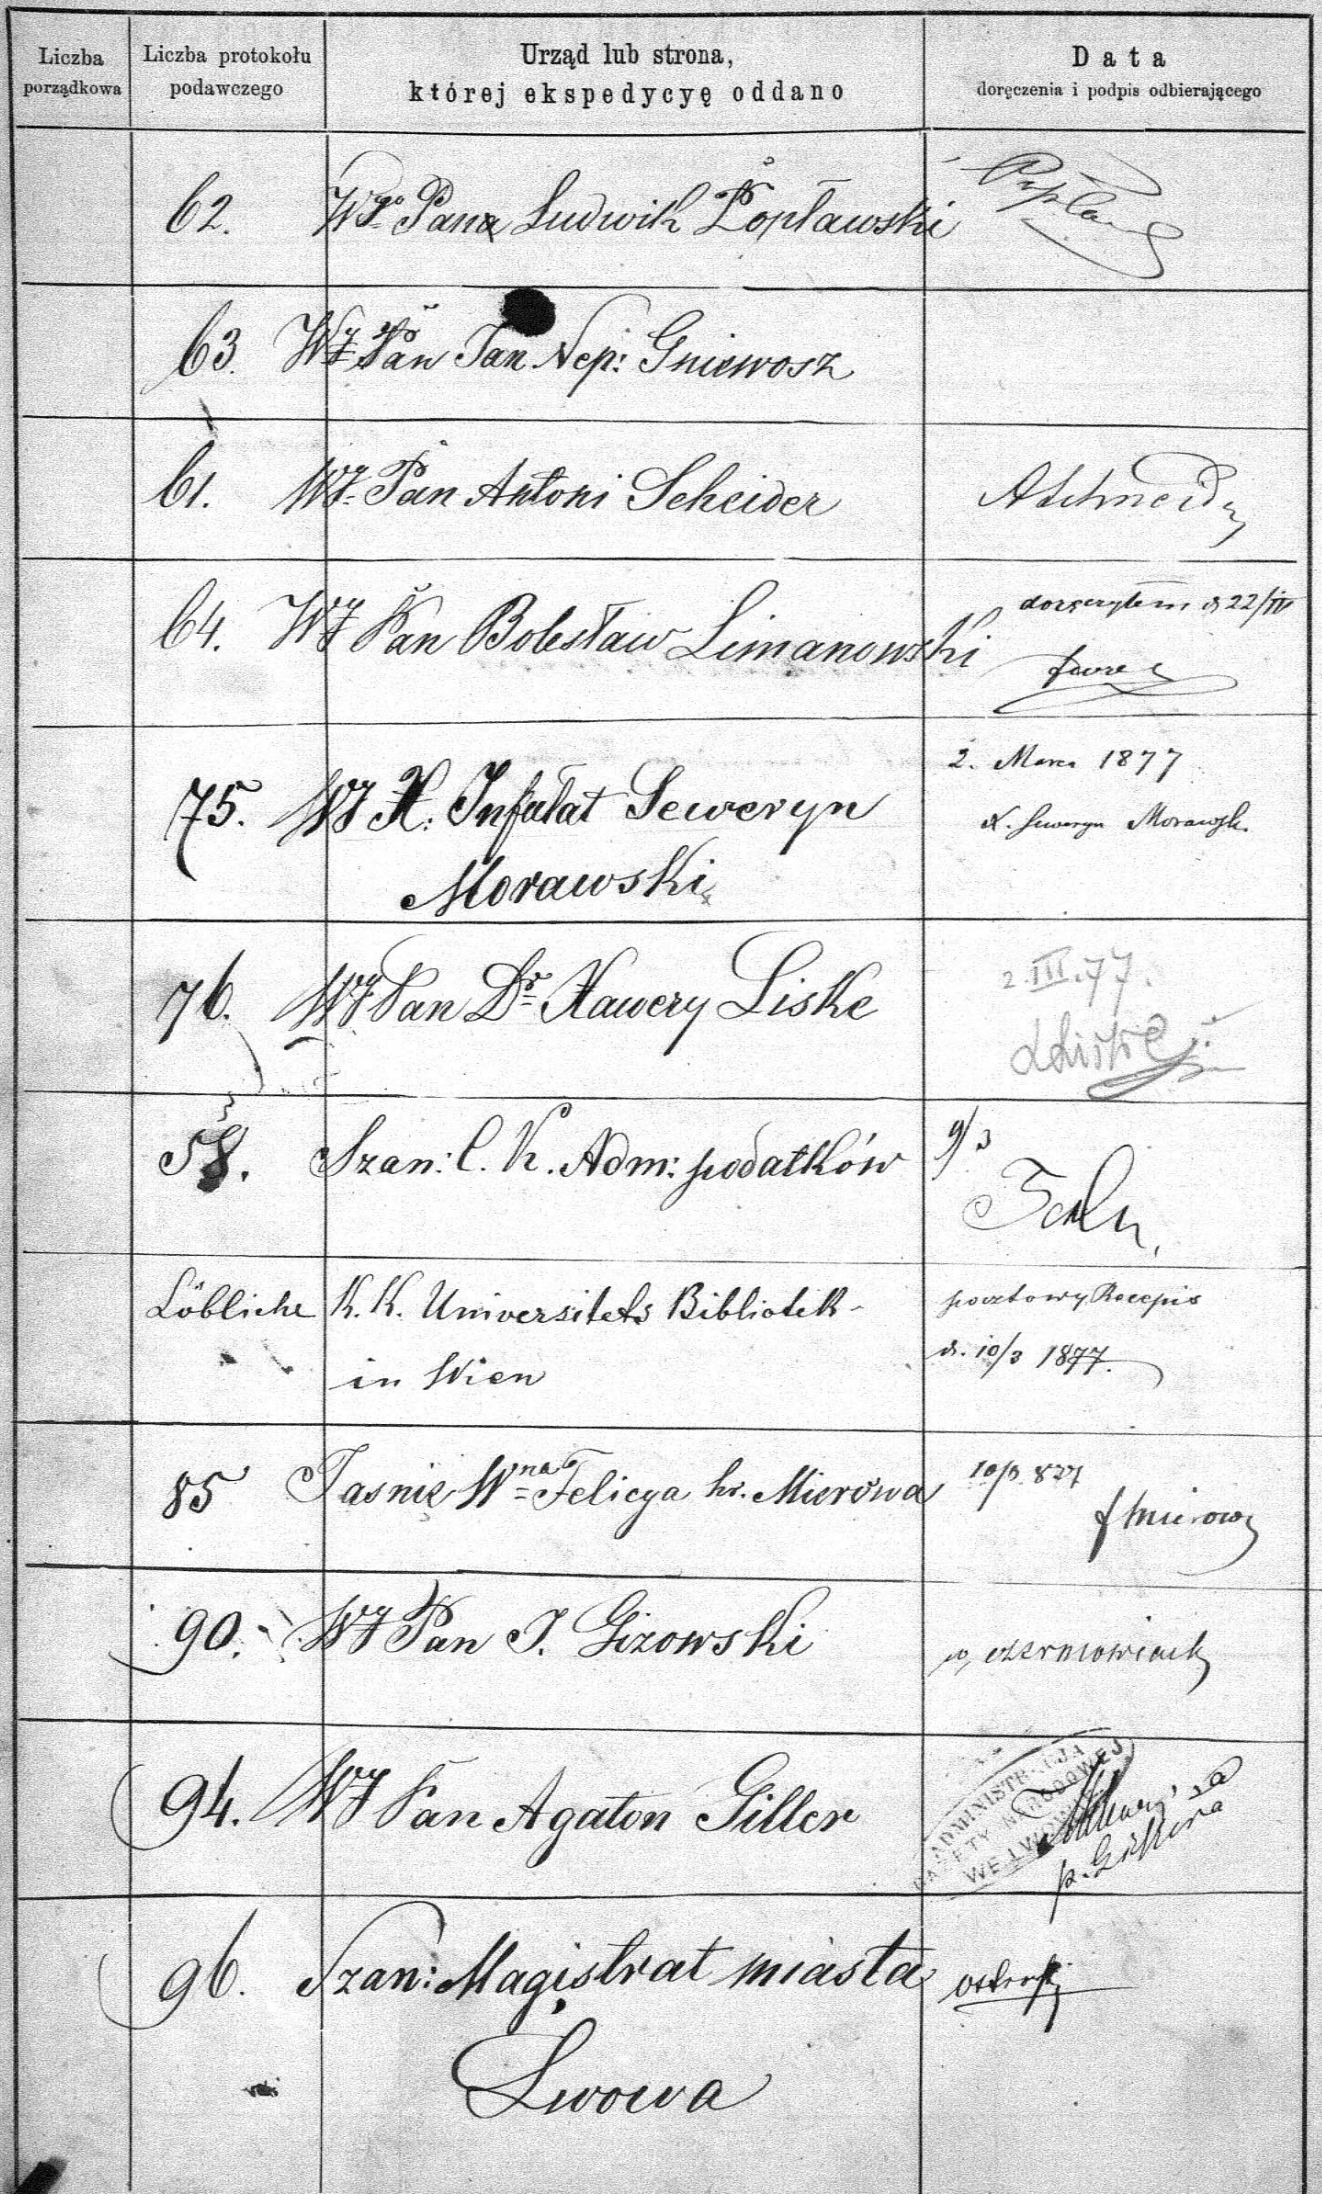 Liczba porządkowa
Liczba protokołu podawczego
Urząd lub strona,
której ekspedycyę oddano
Data
doręczenia i podpis odbierającego
62. Pana Ludwik Popławski
63. WJ Pan Jan Nep: Gniewosz
61. WJ Pan Antoni Scheider ASchneider
64. WJ Pan Bolesław Limanowski
doręczyłem d 22/III
75. WJ X. Infułat Seweryn
Morawski
2. Marca 1877
X. Seweryn Morawski
76. WJ Pan Dr Xawery Liske
2.III.77.
XLiske
58. Szan: C. K. Adm: podatków 9/3
Löbliche K. K. Universitets Bibliotek
in Wien
pocztowy Recepis
d. 10/3 1877.
85 Jasnie Wna Felicya hr. Mierowa 10/3 877
F Mierowa
90. WJ Pan J. Gizowski
w czerniowicach
94. WJ Pan Agaton Giller
ADMINISTRACJA
GAZETY NARODOWEJ
WE LWOWIE
za
p. Gillera
96. Szan: Magistrat miasta
Lwowa